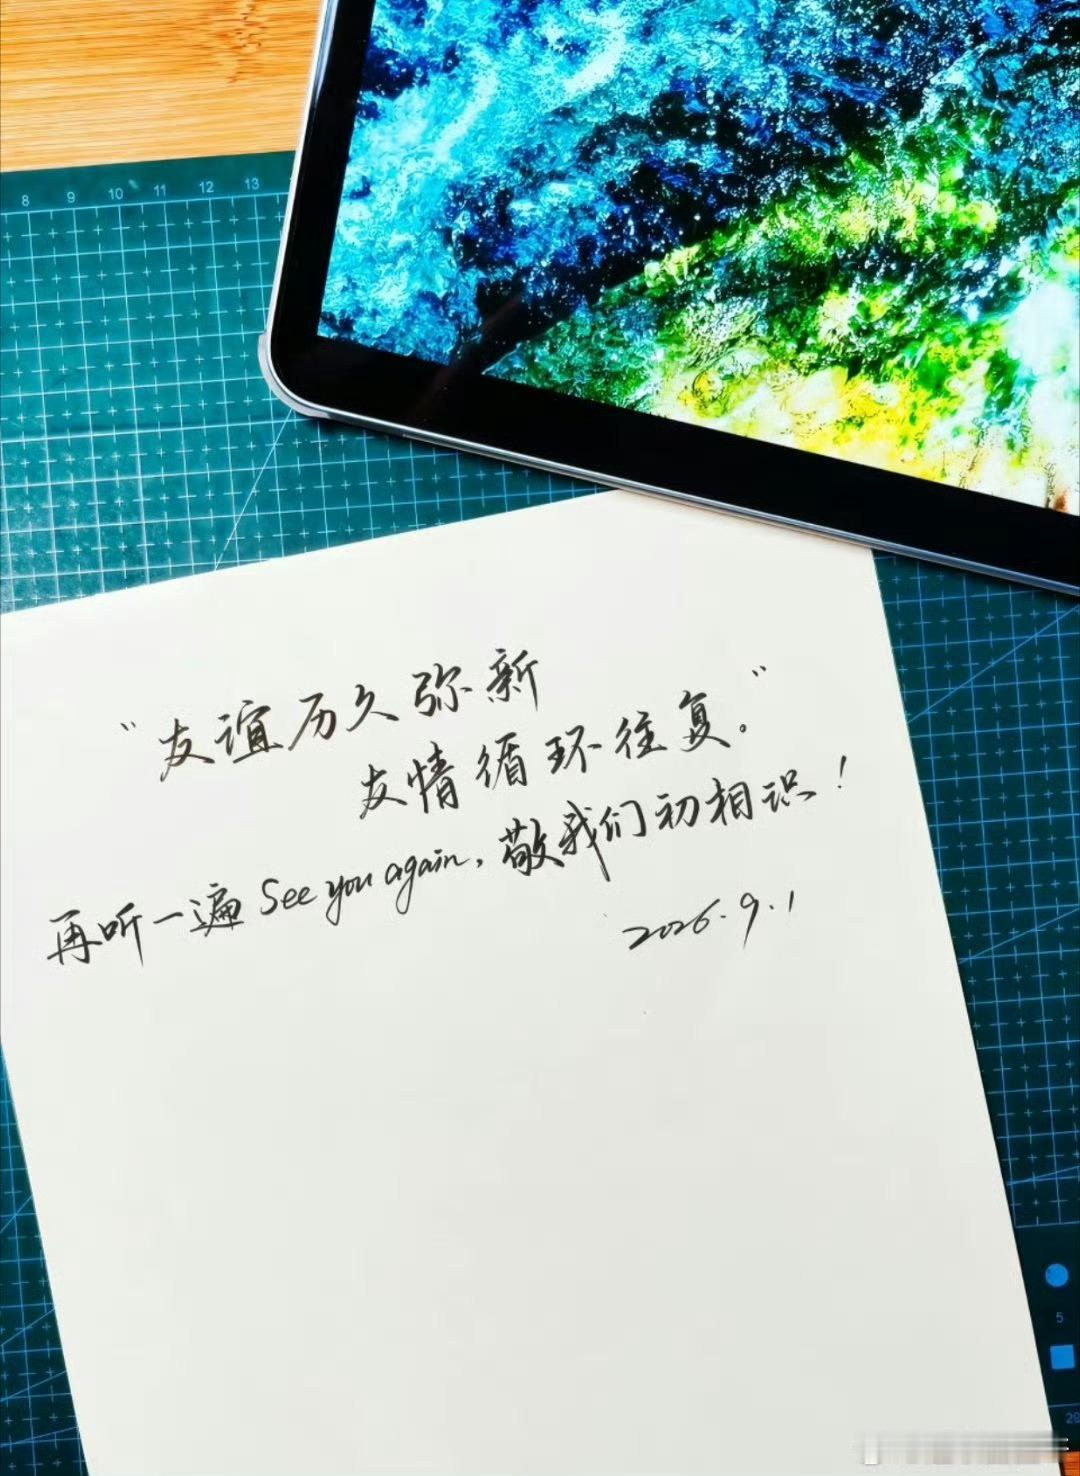 8 9 10 11 12 13
“友谊历久弥新
友情循环往复。”
再听一遍 See you again, 敬我们初相识！
2026.9.1
5